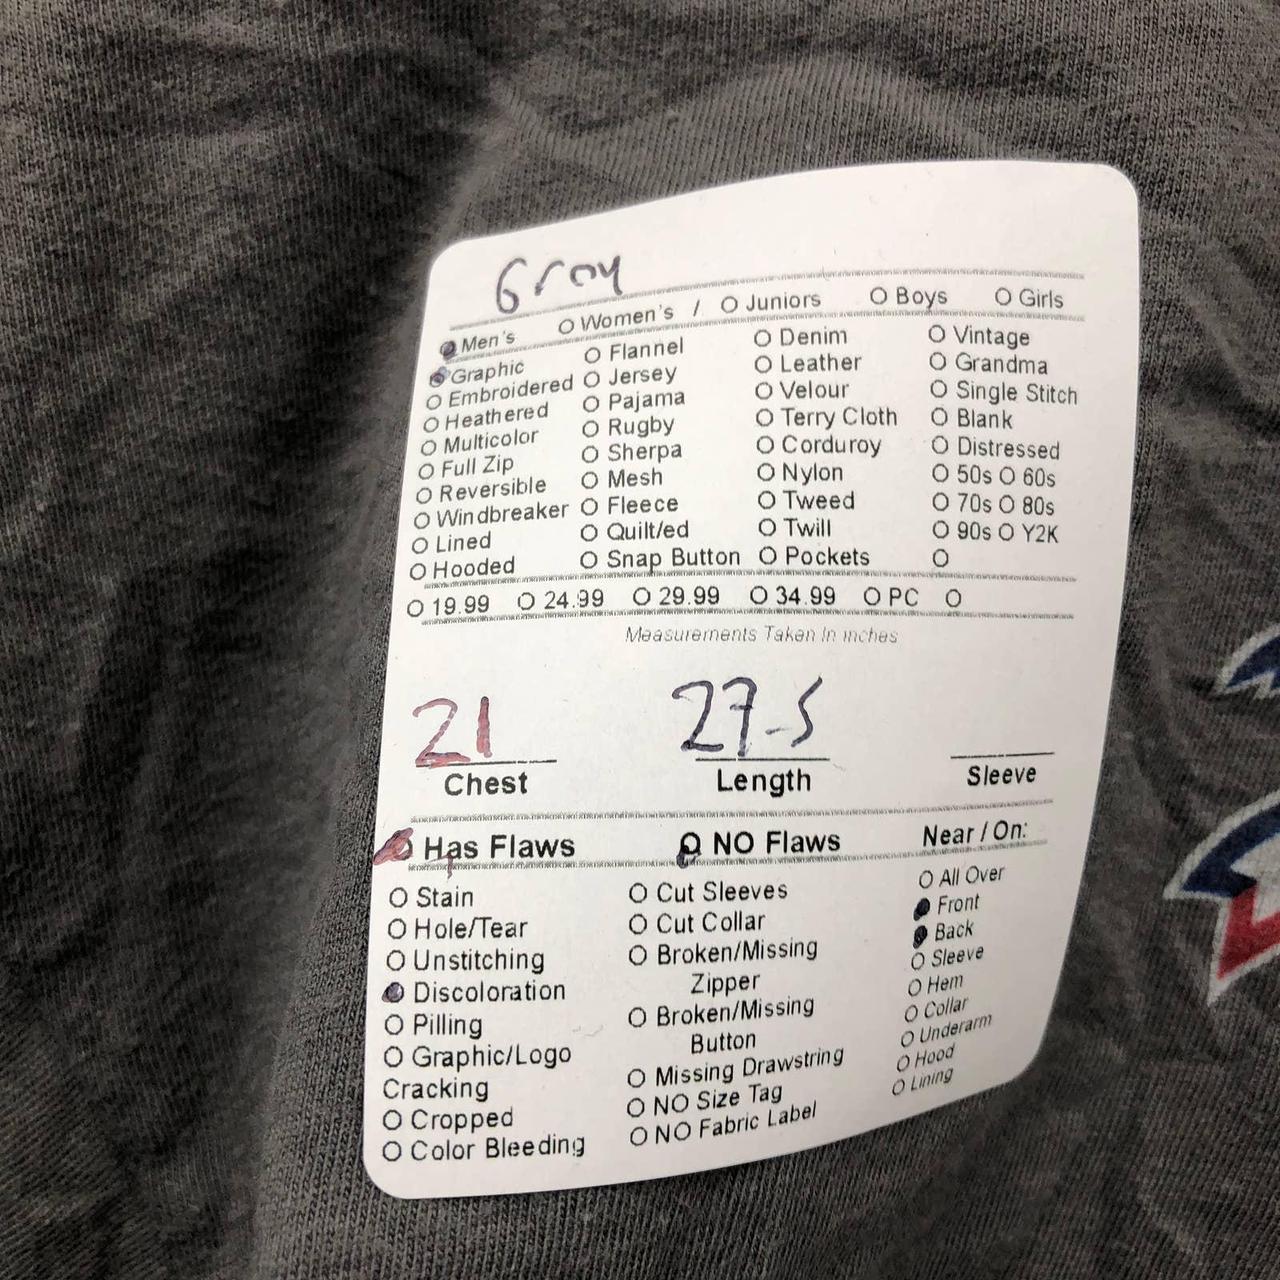 Gray
Men's O Women's / O Juniors O Boys O Girls
Graphic
O Embroidered
O Heathered
O Multicolor
O Full Zip
O Reversible
O Windbreaker
O Lined
O Hooded
O Flannel
O Jersey
O Pajama
O Rugby
O Sherpa
O Mesh
O Fleece
O Quilt/ed
O Snap Button
O Denim
O Leather
O Velour
O Terry Cloth
O Corduroy
O Nylon
O Tweed
O Twill
O Pockets
O Vintage
O Grandma
O Single Stitch
O Blank
O Distressed
O 50s O 60s
O 70s O 80s
O 90s O Y2K
O
O 19.99 O 24.99 O 29.99 O 34.99 O PC O
Measurements Taken In inches
21 27.5
Chest Length Sleeve
Has Flaws O NO Flaws Near / On:
O Stain
O Hole/Tear
O Unstitching
Discoloration
O Pilling
O Graphic/Logo
Cracking
O Cropped
O Color Bleeding
O Cut Sleeves
O Cut Collar
O Broken/Missing
Zipper
O Broken/Missing
Button
O Missing Drawstring
O NO Size Tag
O NO Fabric Label
O All Over
Front
Back
O Sleeve
O Hem
O Collar
O Underarm
O Hood
O Lining